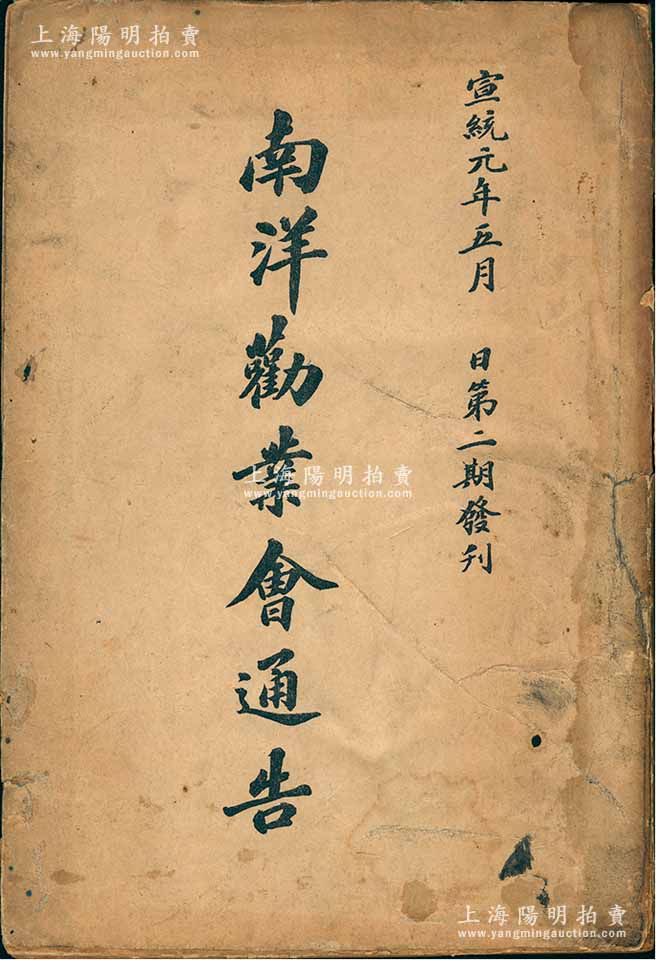 宣統元年五月 日第二期發刊
南洋勸業會通告
上海陽明拍賣
www.yangmingauction.com
上海陽明拍賣
www.yangmingauction.com
上海陽明拍賣
www.yangmingauction.com